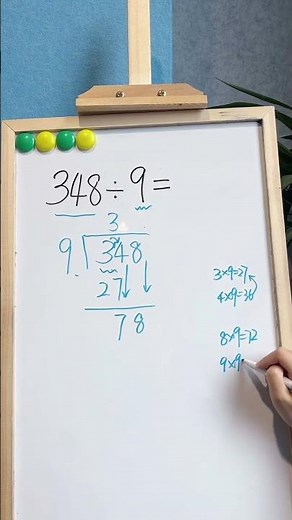 348÷9=
3
9 348
27
78
3×9=27
4×9=36
8×9=72
9×9